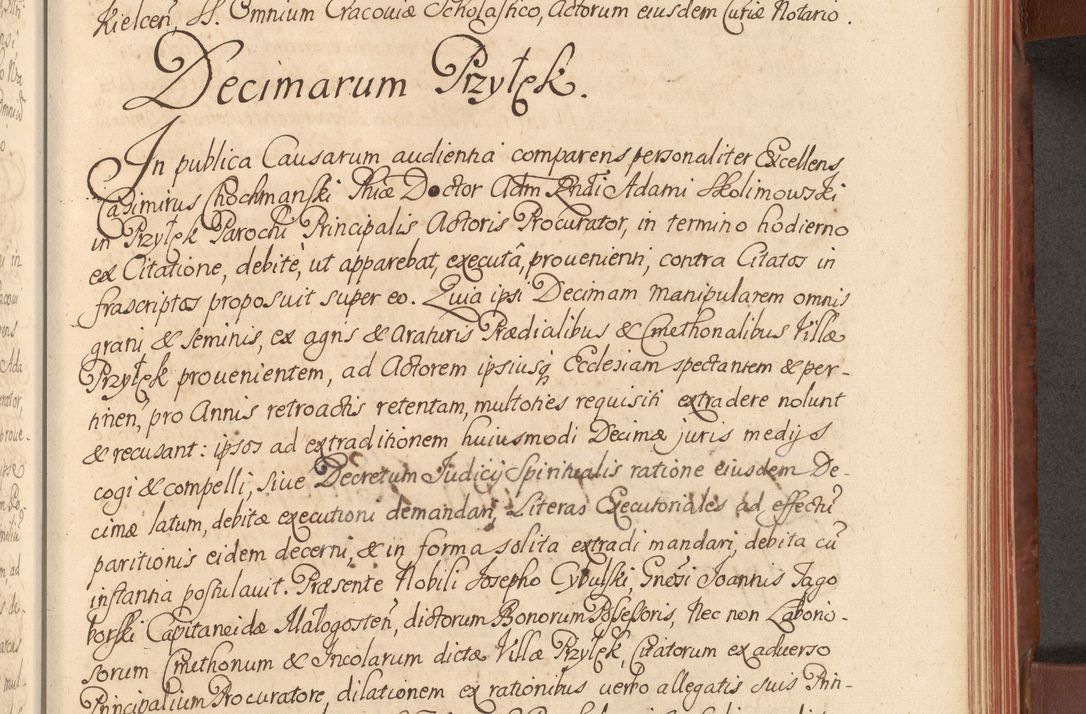 Kielceñ, SS. Omnium Cracoviæ Scholastico, Actorum eiusdem Curiæ Notario.
Decimarum Przyłęk.
In publica Causarum audientia comparens personaliter Excellens
Casimirus Chochmanski Phiæ Doctor Adm Rndi Adami Skolimowski
in Przyłęk Parochi Principalis Actoris Procurator, in termino hodierno
ex Citatione, debitè, ut apparebat, executâ, provenienti, contra Citatos in
frascriptos proposuit super eo. Quia ipsi Decimam manipularem omnis
grani & seminis, ex agris & araturis Prædialibus & Cmethonalibus Villæ
Przyłęk provenientem, ad Actorem ipsiusq Ecclesiam spectantem & per-
tinen, pro Annis retroactis retentam, multoties requisiti extradere nolunt
& recusant: ipsos ad extraditionem huiusmodi Decimæ juris medijs
cogi & compelli, sive Decretum Judicij Spiritualis ratione eiusdem De-
cimæ latum, debitæ executioni demandari, Literas Executoriales ad effectũ
paritionis eidem decerni, & in forma solita extradi mandari, debita cũ
instantia postulavit. Præsente Nobili Josepho Cybulski, Gnosi Joannis Jago
borski Capitaneidæ Małogosteñ, dictorum Bonorum Possessoris, Nec non Laborio-
sorum Cmethonum & Incolarum dictæ Villæ Przyłęk, Citatorum ex adverso
Principalium Procuratore, dilationem ex rationibus verbo allegatis suis Prin-